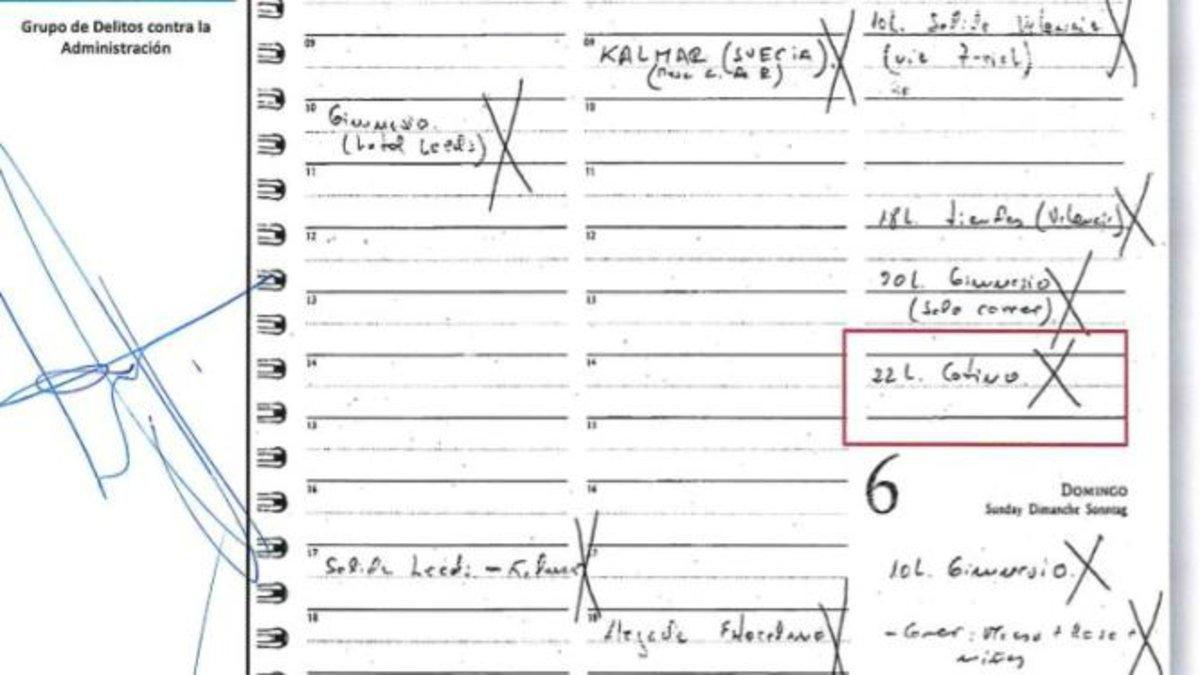 Grupo de Delitos contra la
Administración
09
10
Gimnasio.
(hotel Leeds)
11
12
13
14
16
17
Salida Leeds -
18
09
KALMAR (SUECIA)
10
11
12
13
14
16
17
18
Llegada Estocolmo
10h. Salida Valencia
18h. tiendas (Valencia)
20h. Gimnasio
(Solo correr)
22h. Cotino
6
DOMINGO
Sunday Dimanche Sonntag
10h. Gimnasio.
- Comer: + Rosa +
niños